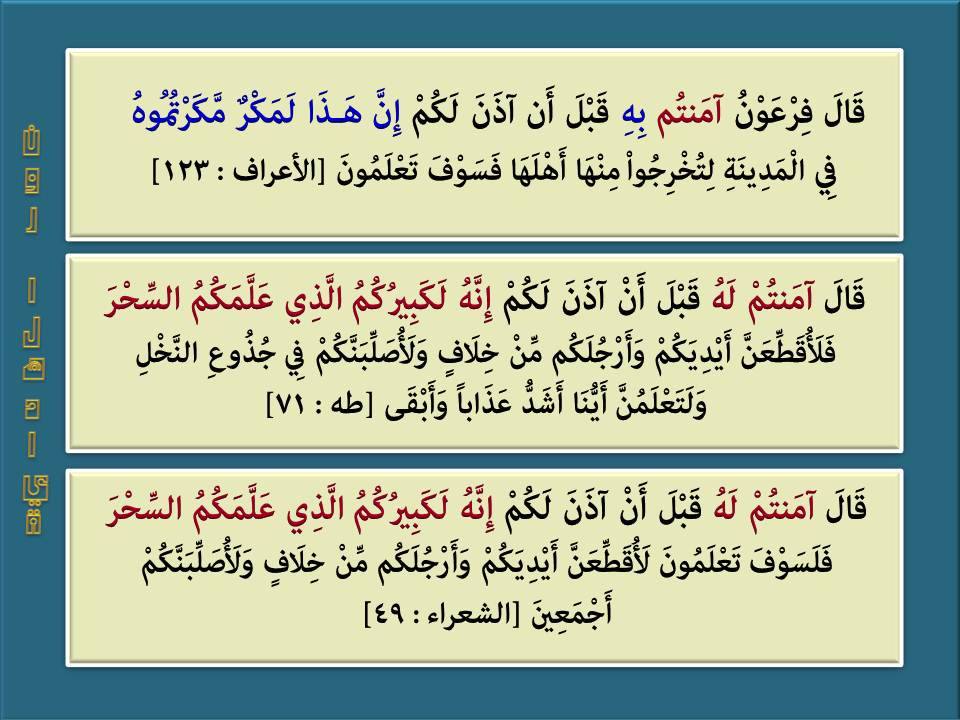 قَالَ فِرْعَوْنُ آمَنتُم بِهِ قَبْلَ أَن آذَنَ لَكُمْ إِنَّ هَـذَا لَمَكْرٌ مَّكَرْتُمُوهُ
فِي الْمَدِينَةِ لِتُخْرِجُواْ مِنْهَا أَهْلَهَا فَسَوْفَ تَعْلَمُونَ [الأعراف : ١٢٣]
قَالَ آمَنتُمْ لَهُ قَبْلَ أَنْ آذَنَ لَكُمْ إِنَّهُ لَكَبِيرُكُمُ الَّذِي عَلَّمَكُمُ السِّحْرَ
فَلَأُقَطِّعَنَّ أَيْدِيَكُمْ وَأَرْجُلَكُم مِّنْ خِلَافٍ وَلَأُصَلِّبَنَّكُمْ فِي جُذُوعِ النَّخْلِ
وَلَتَعْلَمُنَّ أَيُّنَا أَشَدُّ عَذَاباً وَأَبْقَى [طه : ٧١]
قَالَ آمَنتُمْ لَهُ قَبْلَ أَنْ آذَنَ لَكُمْ إِنَّهُ لَكَبِيرُكُمُ الَّذِي عَلَّمَكُمُ السِّحْرَ
فَلَسَوْفَ تَعْلَمُونَ لَأُقَطِّعَنَّ أَيْدِيَكُمْ وَأَرْجُلَكُم مِّنْ خِلَافٍ وَلَأُصَلِّبَنَّكُمْ
أَجْمَعِينَ [الشعراء : ٤٩]